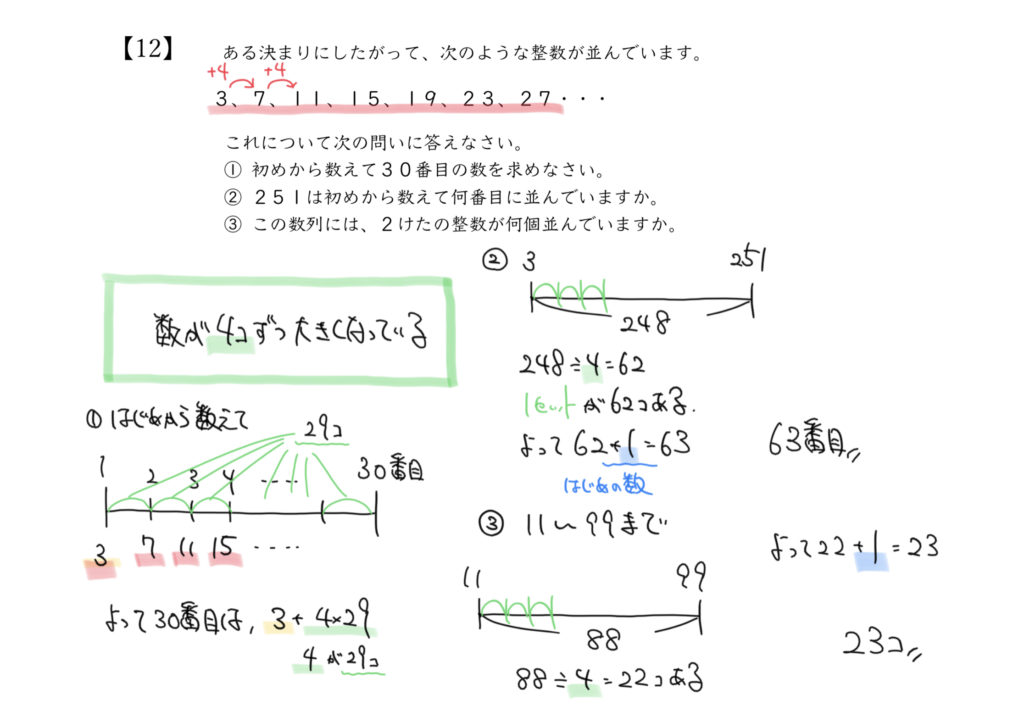 【12】 ある決まりにしたがって、次のような整数が並んでいます。
+4 +4
3、7、11、15、19、23、27・・・
これについて次の問いに答えなさい。
① 初めから数えて30番目の数を求めなさい。
② 251は初めから数えて何番目に並んでいますか。
③ この数列には、2けたの整数が何個並んでいますか。
数が4コずつ大きくなっている
① はじめから数えて
29コ
1 2 3 4 ---- 30番目
3 7 11 15 ----
よって30番目は、3+4×29
4が29コ
② 3 251
248
248÷4=62
1セットが62コある.
よって62+1=63
はじめの数
63番目
③ 11〜99まで
11 99
88
88÷4=22コある
よって22+1=23
23コ